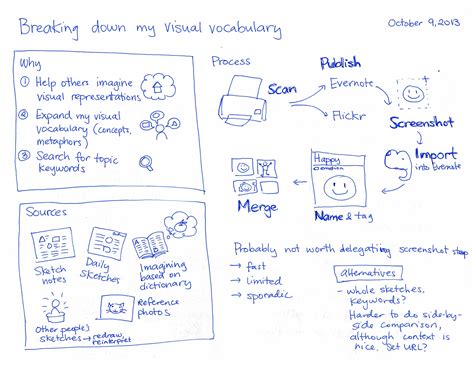 Breaking down my visual vocabulary
October 9, 2013
Why
① Help others imagine
visual representations
② Expand my visual
vocabulary (concepts,
metaphors)
③ Search for topic
keywords
Process
Scan
Publish
Evernote
Flickr
Screenshot
Import
into evernote
Happy
Name & tag
Merge
Sources
Sketch
notes
Daily
sketches
Imagining
based on
dictionary
Other people's
sketches → redraw,
reinterpret
Reference
photos
Probably not worth delegating screenshot step
→ fast
→ limited
→ sporadic
Alternatives
- whole sketches,
keywords?
Harder to do side-by-
side comparison,
although context is
nice. Set URL?